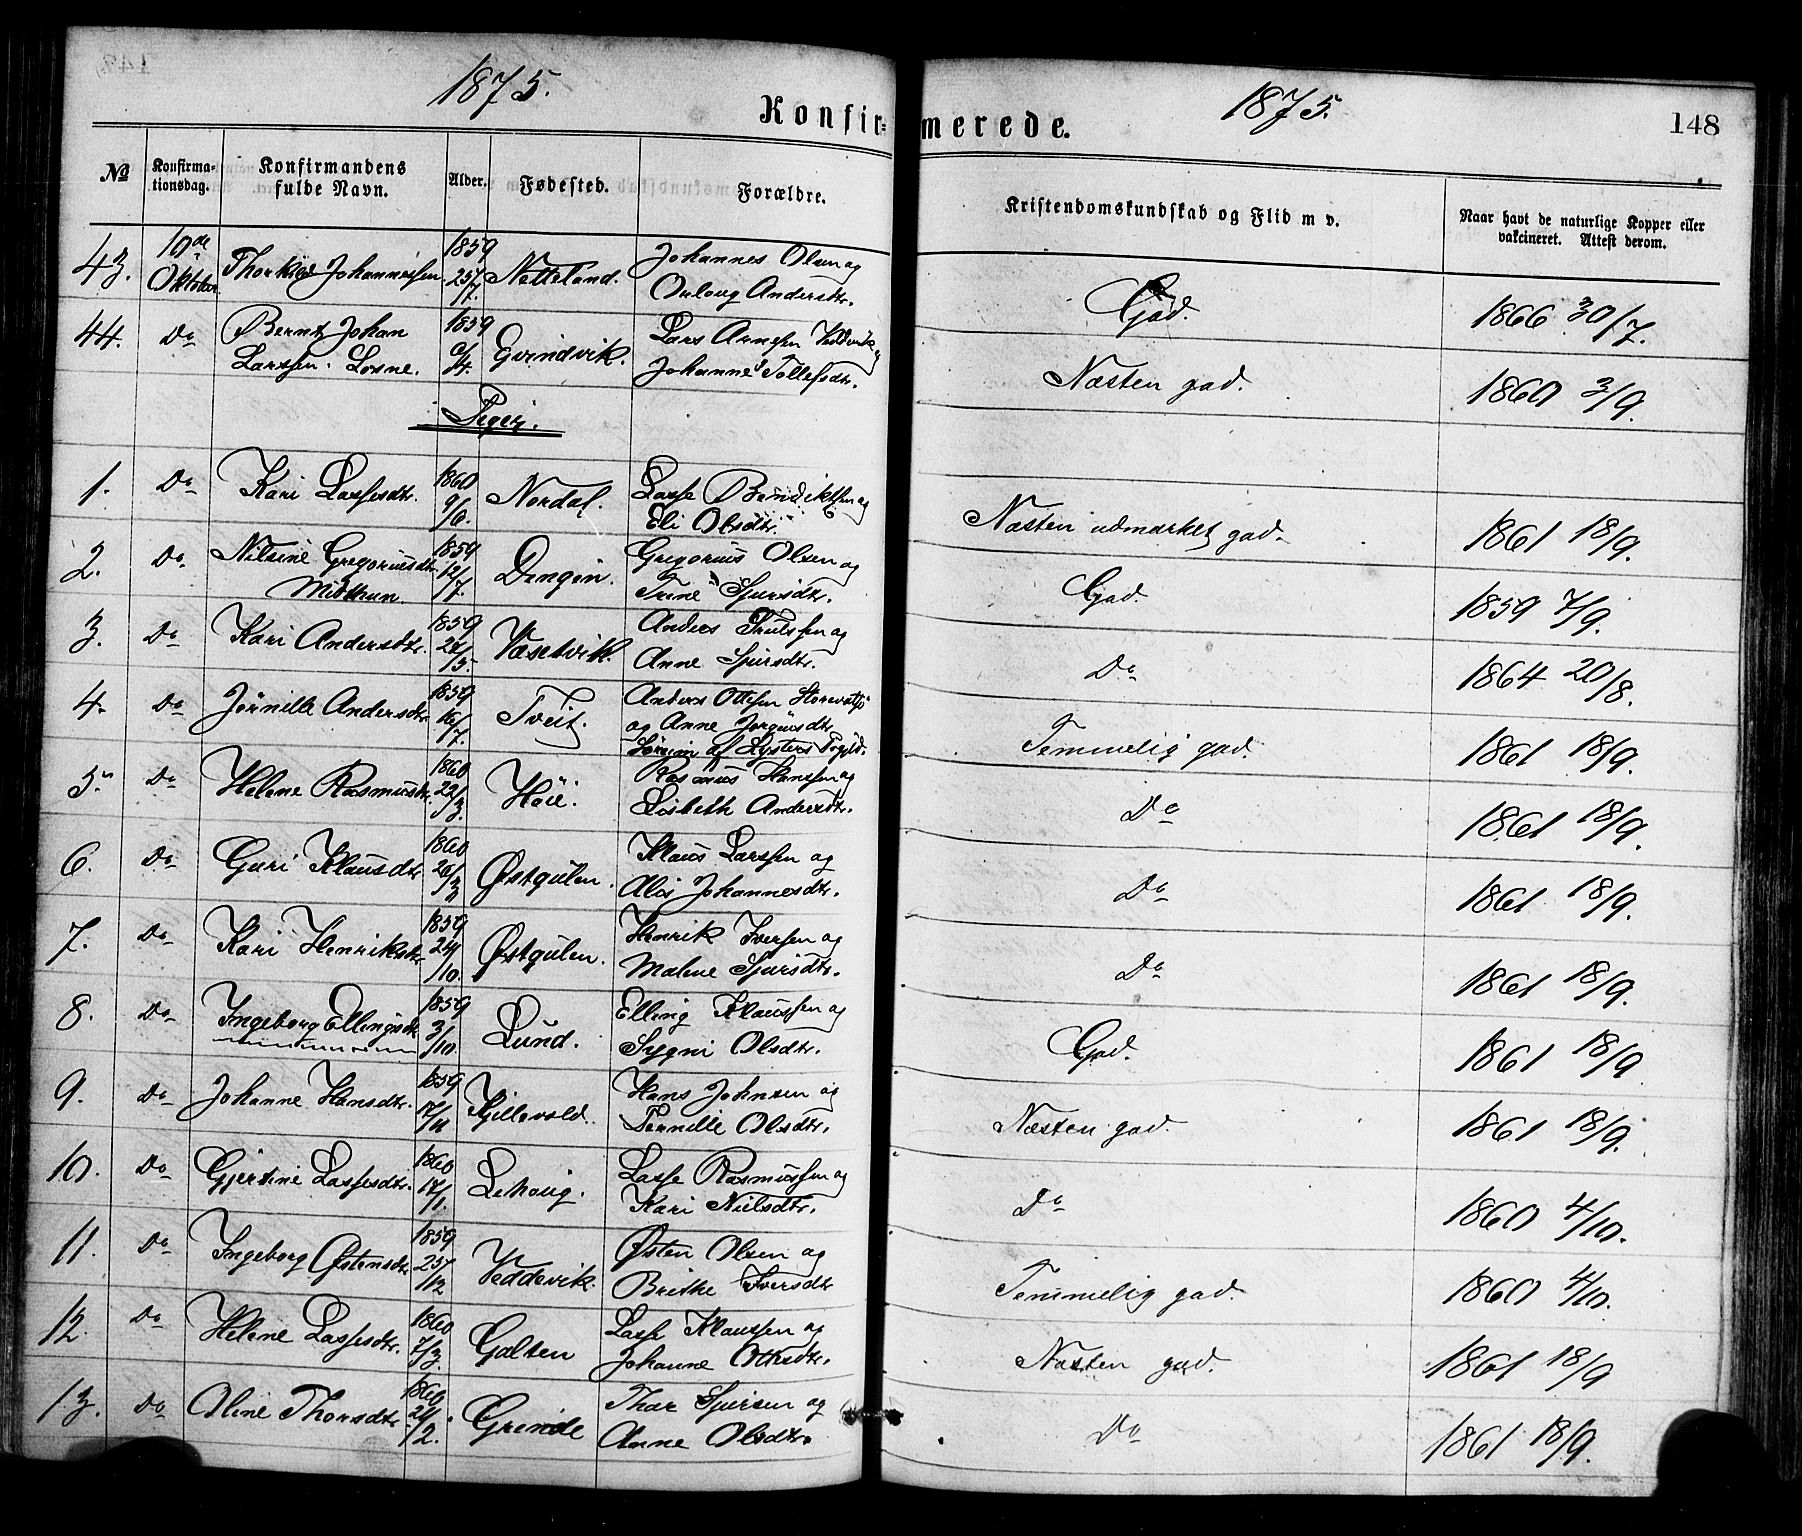 1875.
Konfir=
merede.
1875.
148
№
Konfirma-
tionsdag.
Konfirmandens
fulde Navn.
Alder.
Fødested.
Forældre.
Kristendomskundskab og Flid m v.
Naar havt de naturlige Kopper eller
vakcineret. Attest derom.
43. 10de Oktober Johannessen 1859 25/7. Netteland. Johannes Olsen og
Andersdtr. God. 1866 30/7.
44. Do Bernt Johan 1859 6/4. Evindvik. Lars Arnesen
Larssen. Losne. Johanne Tollefsdtr. Næsten god. 1860 3/9.
Piger.
1. Do Kari Lassesdtr. 1860 9/6. Nordal. Lasse Bendiktsen og
Eli Olsdtr. Næsten udmærket god. 1861 18/9.
2. Do Nilsine Gregoriusdtr. 1859 12/7. Dingen. Gregorius Olsen og
Midthun. Trine Sjursdtr. God. 1859 7/9.
3. Do Kari Andersdtr. 1859 27/5. Væsetvik. Anders Trulssen og
Anne Sjursdtr. Do 1864 20/8.
4. Do Jørnille Andersdtr. 1859 16/7. Tveit. Anders Ottesen
og Anne Jørginsdtr.
Søreim af Lysters Prgjld. Temmelig god. 1861 18/9.
5. Do Helene Rasmusdtr. 1860 22/3. Høie. Rasmus Hanssen og
Lisbeth Andersdtr. Do 1861 18/9.
6. Do Guri Klausdtr. 1860 26/3 Østgulen. Klaus Larssen og
Alis Johannesdtr. Do 1861 18/9.
7. Do Kari Henriksdtr. 1859 24/10. Østgulen. Henrik Iversen og
Malene Sjursdtr. Do 1861 18/9.
8. Do Ingeborg Ellingsdtr. 1859 3/10. Lund. Elling Klaussen og
Sygni Olsdtr. God. 1861 18/9
9. Do Johanne Hansdtr. 1859 17/11 Kjillevold. Hans Johnsen og
Pernille Olsdtr. Næsten god. 1861 18/9.
10. Do Gjertine Lassesdtr. 1860 17/1. Lehoug. Lasse Rasmussen og
Kari Nielsdtr. Do 1860 4/10.
11. Do Ingeborg Østensdtr. 1859 25/12 Veddevik. Østen Olsen og
Brithe Iversdtr Temmelig god. 1860 4/10.
12. Do Helene Lassesdtr. 1860 7/3. Galten Lasse Klaussen og
Johanne Ottesdtr. Næsten god. 1861 18/9
13. Do Oline Thorsdtr. 1860 24/2. Grinde Thor Sjursen og
Anne Olsdtr. Do 1861 18/9.